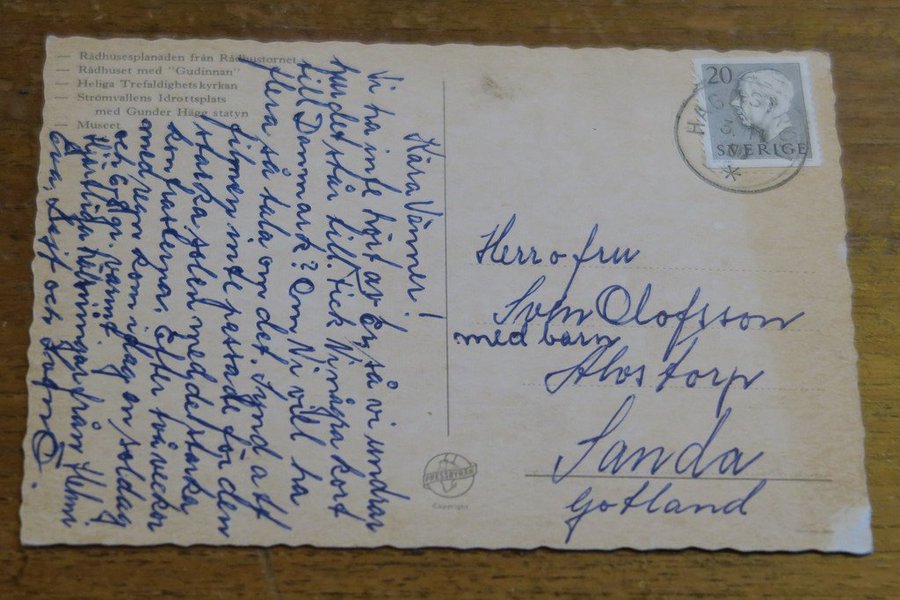 — Rådhusesplanaden från Rådhustornet
— Rådhuset med "Gudinnan"
— Heliga Trefaldighetskyrkan
— Strömvallens Idrottsplats
med Gunder Hägg statyn
— Museet
Kära Vänner!
Vi ha inte hört av Er, så vi undrar
hur det står till. Fick Ni några kort
till Danmark? Om Ni vill ha
flera så tala om det. Synd att
filmen inte passade för den
starka solen med de starka
kontrasterna. Efter två veckor
med regn kom idag en soldag
och gr. varmt.
Hjärtliga hälsningar från Helmi
Leif och Ingmar.
20
SVERIGE
Herr o fru
Sven Olofsson
med barn
Alvstorp
Sanda
Gotland
PRESSBYRÅN
Copyright